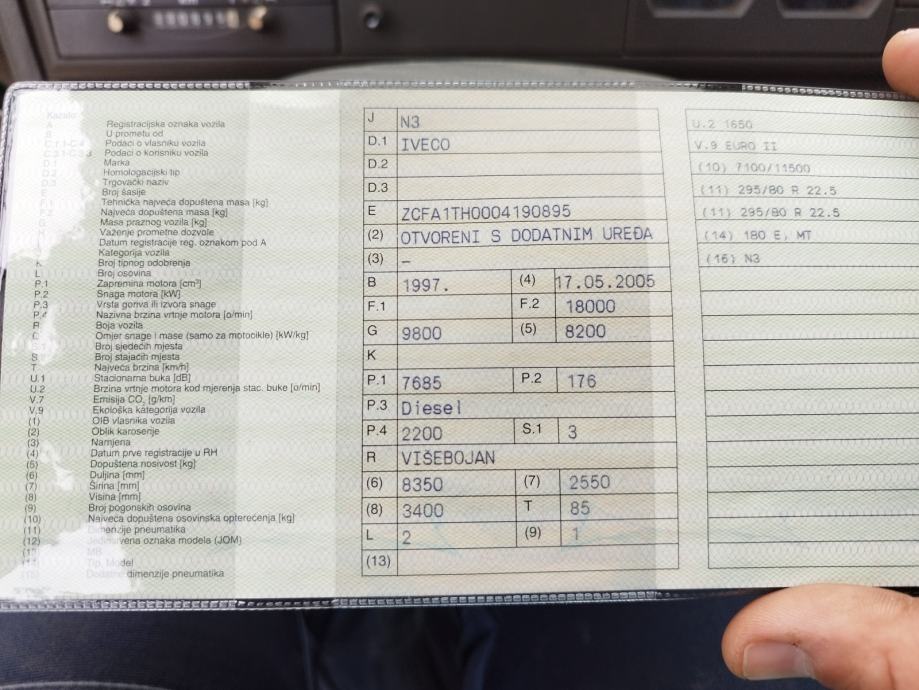 Registracijska oznaka vozila
U prometu od
Podaci o vlasniku vozila
Podaci o korisniku vozila
Marka
Homologacijski tip
Trgovački naziv
Broj šasije
Tehnička najveća dopuštena masa [kg]
Najveća dopuštena masa [kg]
Masa praznog vozila [kg]
Važenje prometne dozvole
Datum registracije reg. oznakom pod A
Kategorija vozila
K Broj tipnog odobrenja
L Broj osovina
P.1 Zapremina motora [cm³]
P.2 Snaga motora [kW]
P.3 Vrsta goriva ili izvora snage
P.4 Nazivna brzina vrtnje motora [o/min]
R Boja vozila
Q Omjer snage i mase (samo za motocikle) [kW/kg]
Broj sjedećih mjesta
S Broj stajaćih mjesta
T Najveća brzina [km/h]
U.1 Stacionarna buka [dB]
U.2 Brzina vrtnje motora kod mjerenja stac. buke [o/min]
V.7 Emisija CO₂ [g/km]
V.9 Ekološka kategorija vozila
(1) OIB vlasnika vozila
(2) Oblik karoserije
(3) Namjena
(4) Datum prve registracije u RH
(5) Dopuštena nosivost [kg]
(6) Duljina [mm]
(7) Širina [mm]
(8) Visina [mm]
(9) Broj pogonskih osovina
(10) Najveća dopuštena osovinska opterećenja [kg]
(11) Dimenzije pneumatika
(12) Jedinstvena oznaka modela (JOM)
MB
Tip, Model
Dodatne dimenzije pneumatika
J N3
D.1 IVECO
D.2
D.3
E ZCFA1TH0004190895
(2) OTVORENI S DODATNIM UREĐA
(3) –
B 1997. (4) 17.05.2005
F.1 F.2 18000
G 9800 (5) 8200
K
P.1 7685 P.2 176
P.3 Diesel
P.4 2200 S.1 3
R VIŠEBOJAN
(6) 8350 (7) 2550
(8) 3400 T 85
L 2 (9) 1
(13)
U.2 1650
V.9 EURO II
(10) 7100/11500
(11) 295/80 R 22.5
(11) 295/80 R 22.5
(14) 180 E, MT
(16) N3